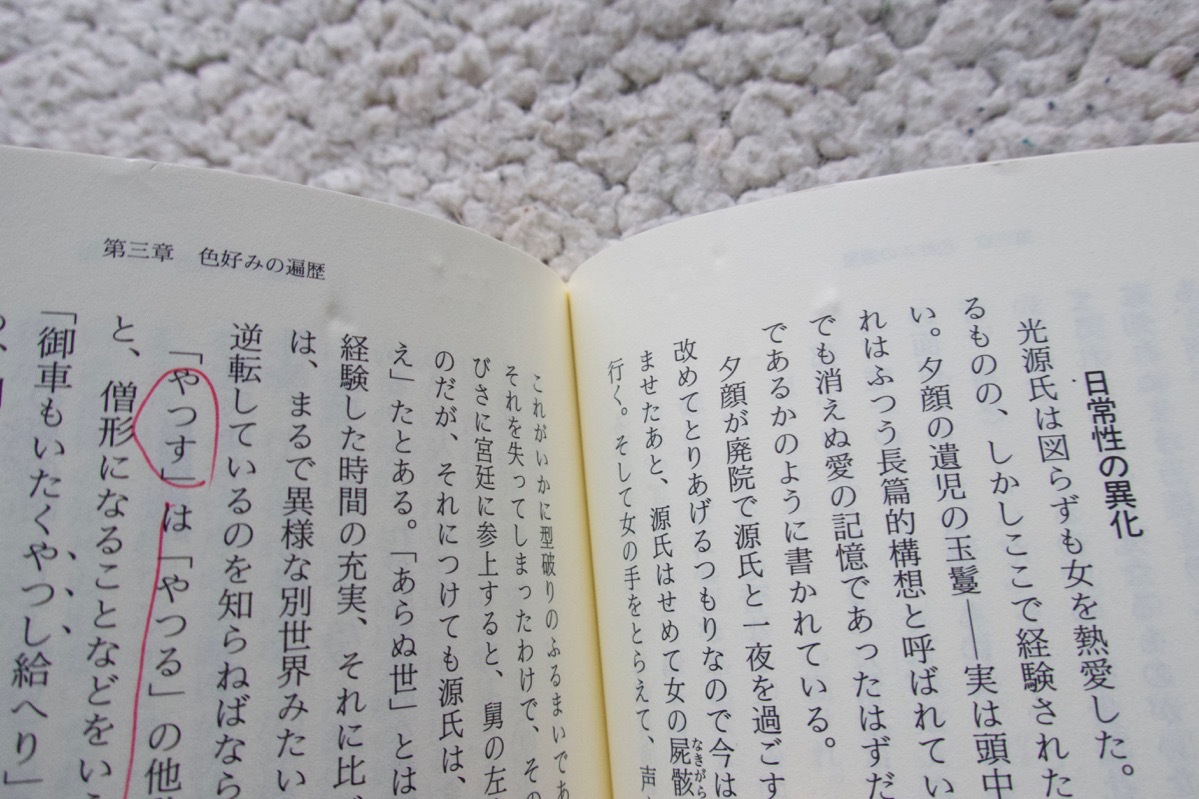 日常性の異化
光源氏は図らずも女を熱愛した。
るものの、しかしここで経験された
い。夕顔の遺児の玉鬘――実は頭中
れはふつう長篇的構想と呼ばれてい
でも消えぬ愛の記憶であったはずだ
であるかのように書かれている。
夕顔が廃院で源氏と一夜を過ごす
改めてとりあげるつもりなので今は
ませたあと、源氏はせめて女の屍骸
なきがら
行く。そして女の手をとらえて、声
第三章 色好みの遍歴
これがいかに型破りのふるまいであ
それを失ってしまったわけで、その
びさに宮廷に参上すると、舅の左
のだが、それにつけても源氏は、
え」たとある。「あらぬ世」とは
経験した時間の充実、それに比
は、まるで異様な別世界みたい
逆転しているのを知らねばなら
「やつす」は「やつる」の他
と、僧形になることなどをい
「御車もいたくやつし給へり」